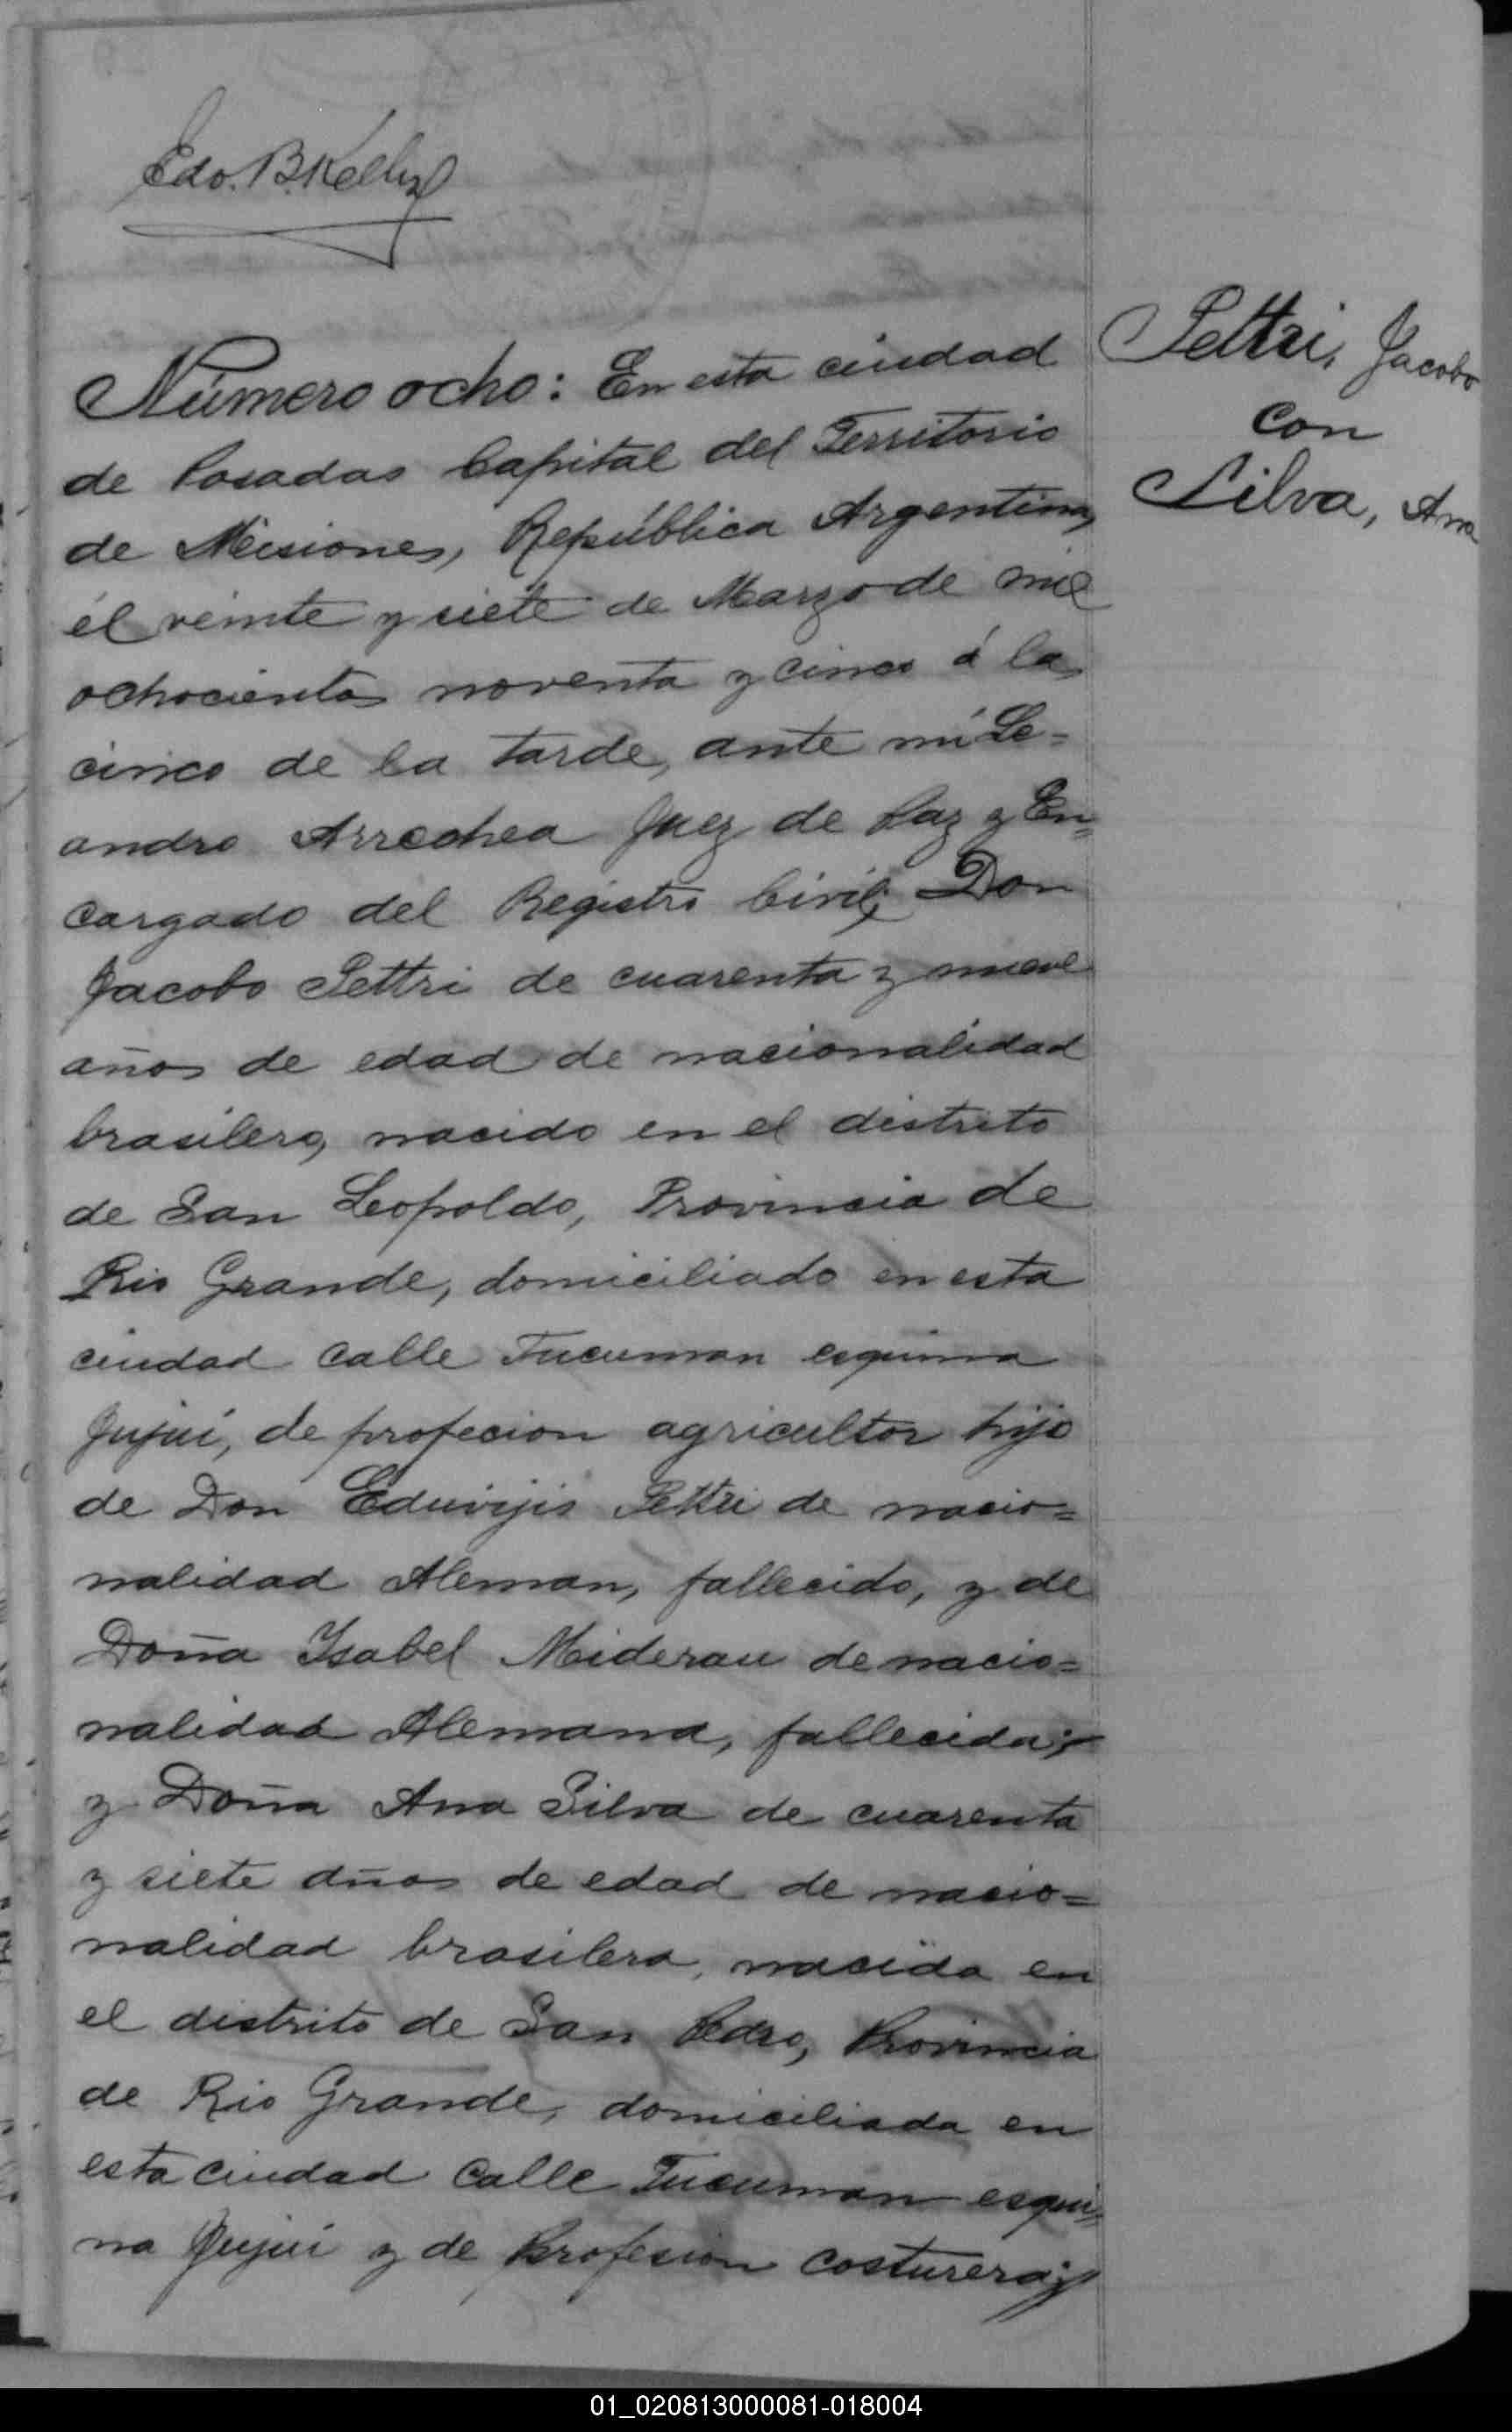 Edo. B. Kelly
Número ocho: En esta ciudad
de Posadas Capital del Territorio
de Misiones, República Argentina,
él veinte y siete de Marzo de mil
ochocientos noventa y cinco á las
cinco de la tarde, ante mí Le=
andro Arrechea Juez de Paz y En=
cargado del Registro Civil; Don
Jacobo Pettri de cuarenta y nueve
años de edad de nacionalidad
brasilero, nacido en el distrito
de San Leopoldo, Provincia de
Rio Grande, domiciliado en esta
ciudad calle Tucuman esquina
Jujuí, de profecion agricultor hijo
de Don Eduvijis Pettri de nacio=
nalidad Aleman, fallecido, y de
Doña Isabel Miderau de nacio=
nalidad Alemana, fallecida;
y Doña Ana Silva de cuarenta
y siete años de edad de nacio=
nalidad brasilera, nacida en
el distrito de San Pedro, Provincia
de Rio Grande, domiciliada en
esta ciudad calle Tucuman esqui=
na Jujuí y de Profesion costurera;
Pettri, Jacobo
con
Silva, Ana
01_020813000081-018004